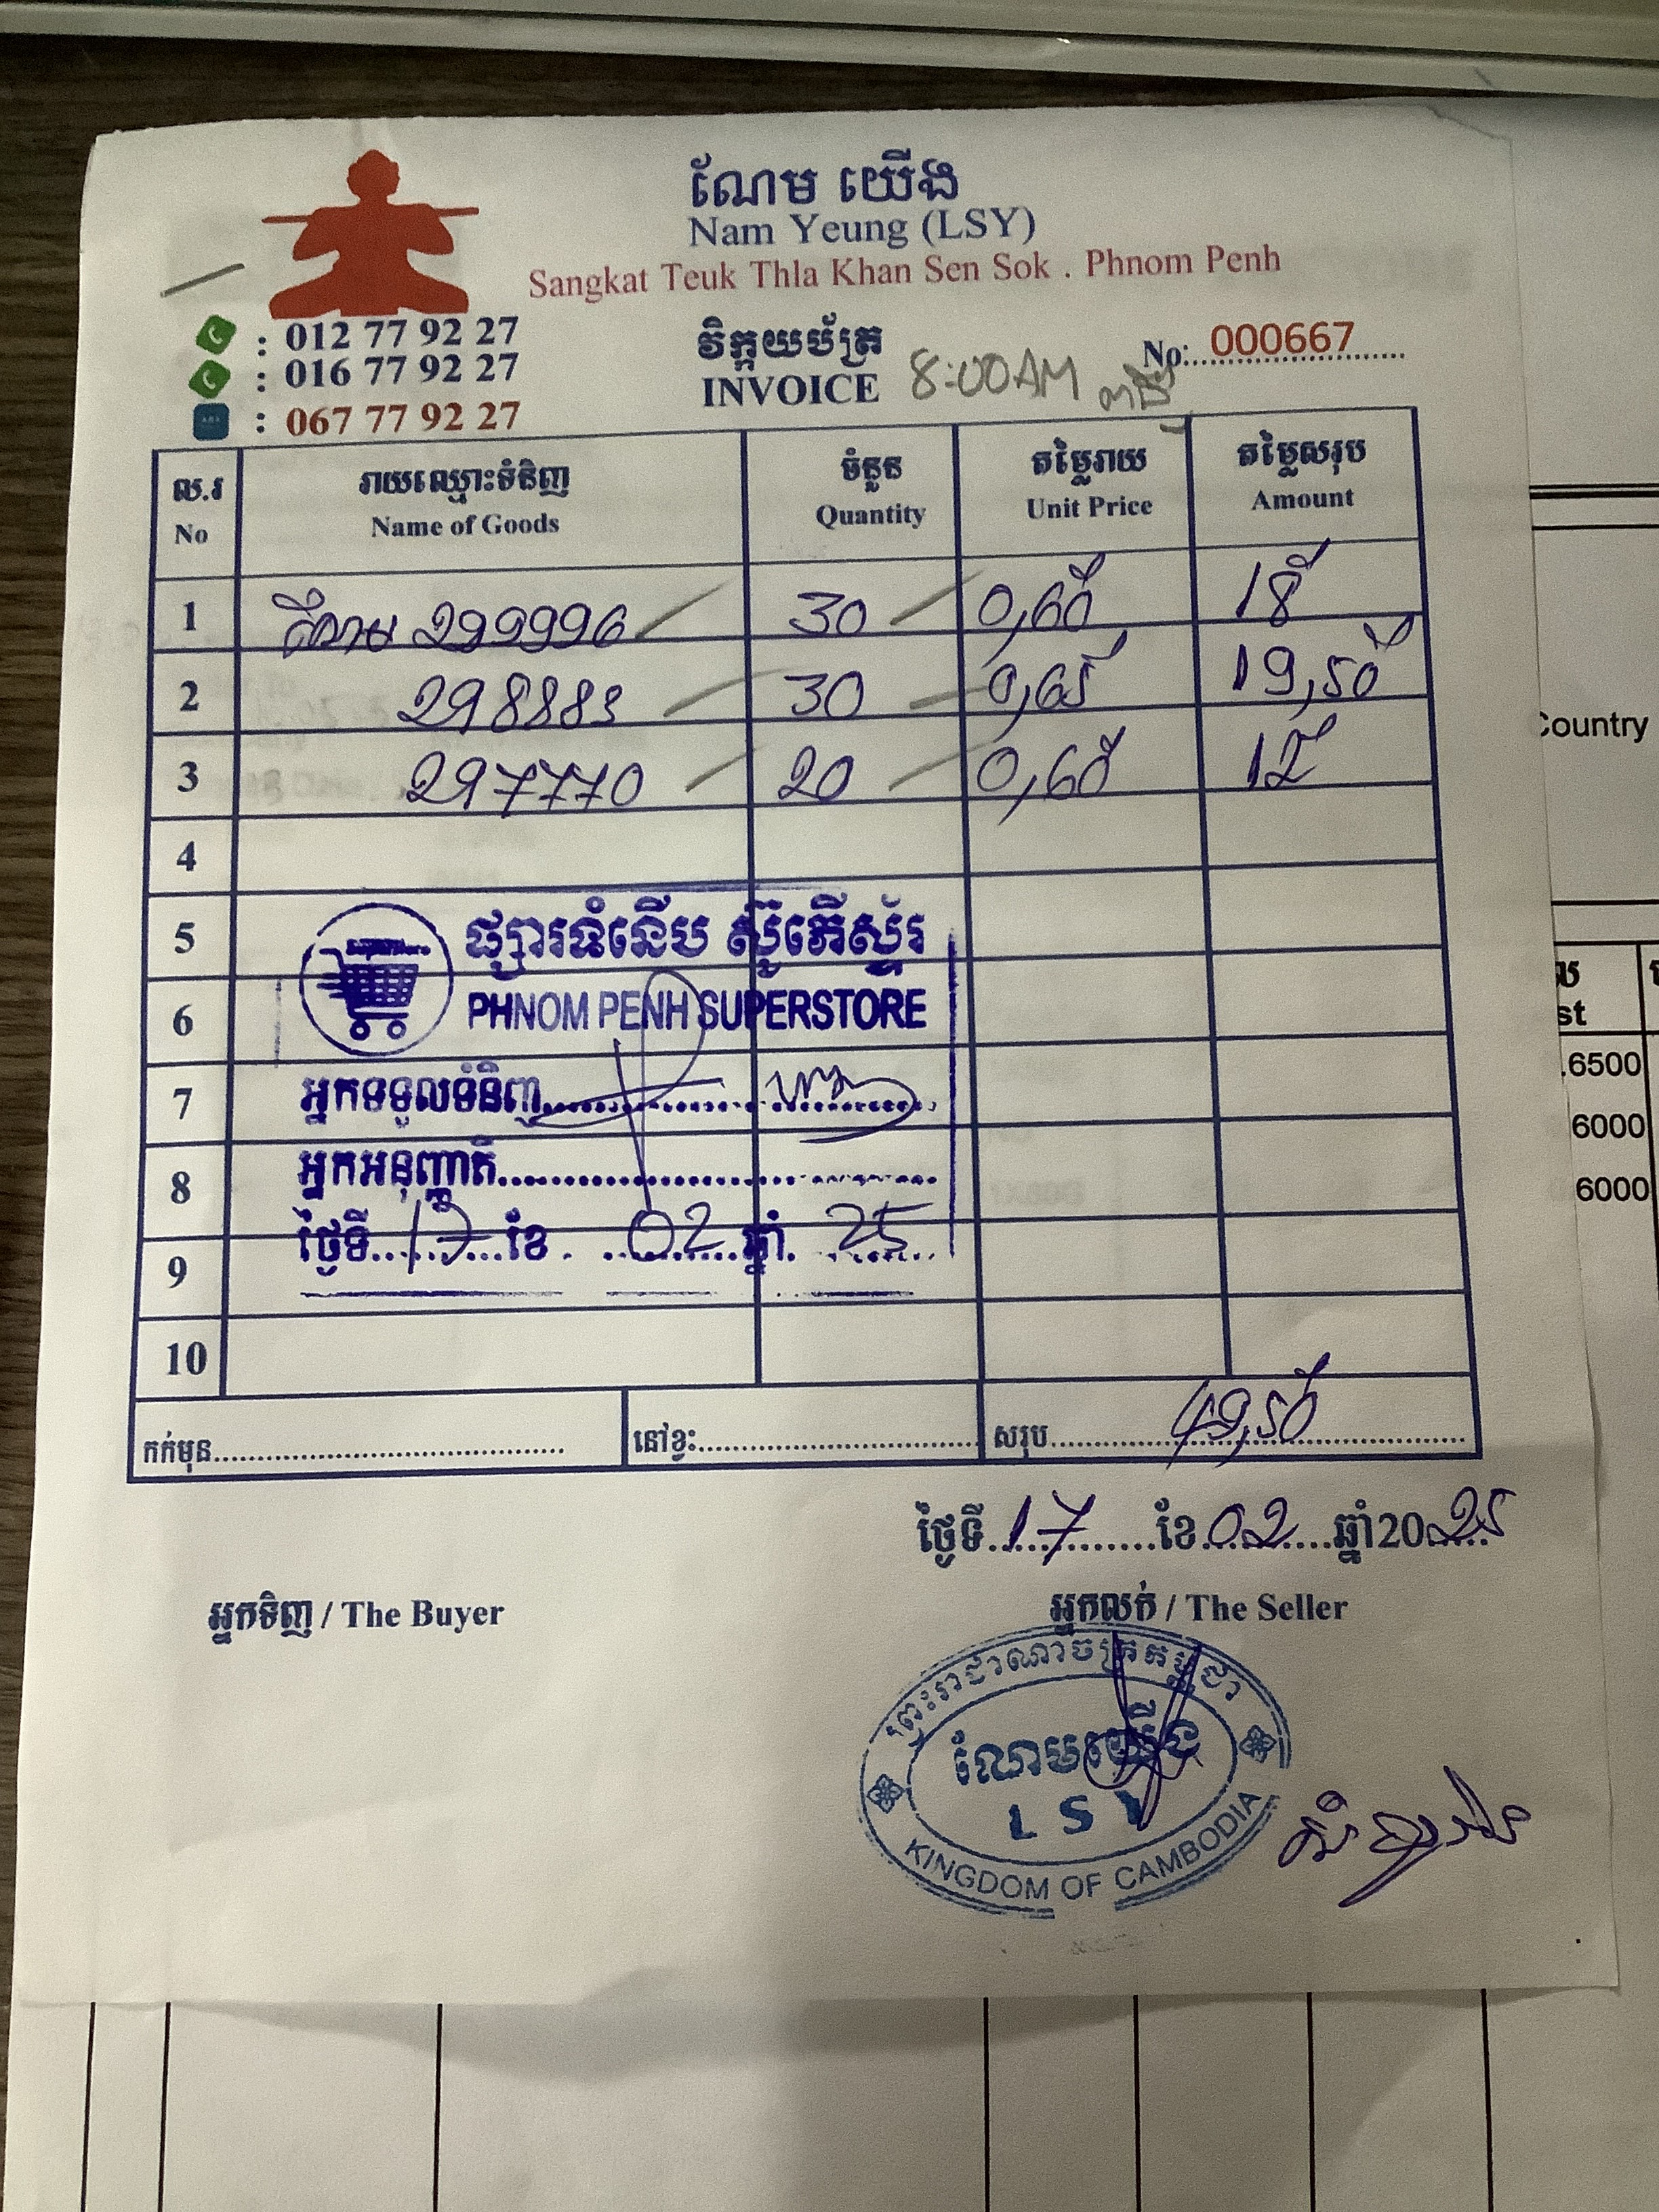 ណែម យើង
Nam Yeung (LSY)
Sangkat Teuk Thla Khan Sen Sok . Phnom Penh
: 012 77 92 27
: 016 77 92 27
: 067 77 92 27
វិក្កយប័ត្រ
INVOICE
8:00AM
No: 000667
ល.រ រាយឈ្មោះទំនិញ ចំនួន តម្លៃរាយ តម្លៃសរុប
No Name of Goods Quantity Unit Price Amount
1 299996 30 0,60 18
2 298883 30 0,65 19,50
3 297770 20 0,60 12
4
5
6
7
8
9
10
ផ្សារទំនើប ស៊ូភើស្ទ័រ
PHNOM PENH SUPERSTORE
អ្នកទទួលទំនិញ
អ្នកអនុញ្ញាតិ
ថ្ងៃទី 17 ខែ 02 ឆ្នាំ 25
កក់មុន នៅខ្វះ សរុប 49,50
ថ្ងៃទី 17 ខែ 02 ឆ្នាំ 2025
អ្នកទិញ / The Buyer
អ្នកលក់ / The Seller
ព្រះរាជាណាចក្រកម្ពុជា
ណែមយើង
LSY
KINGDOM OF CAMBODIA
Country
st
.6500
6000
6000